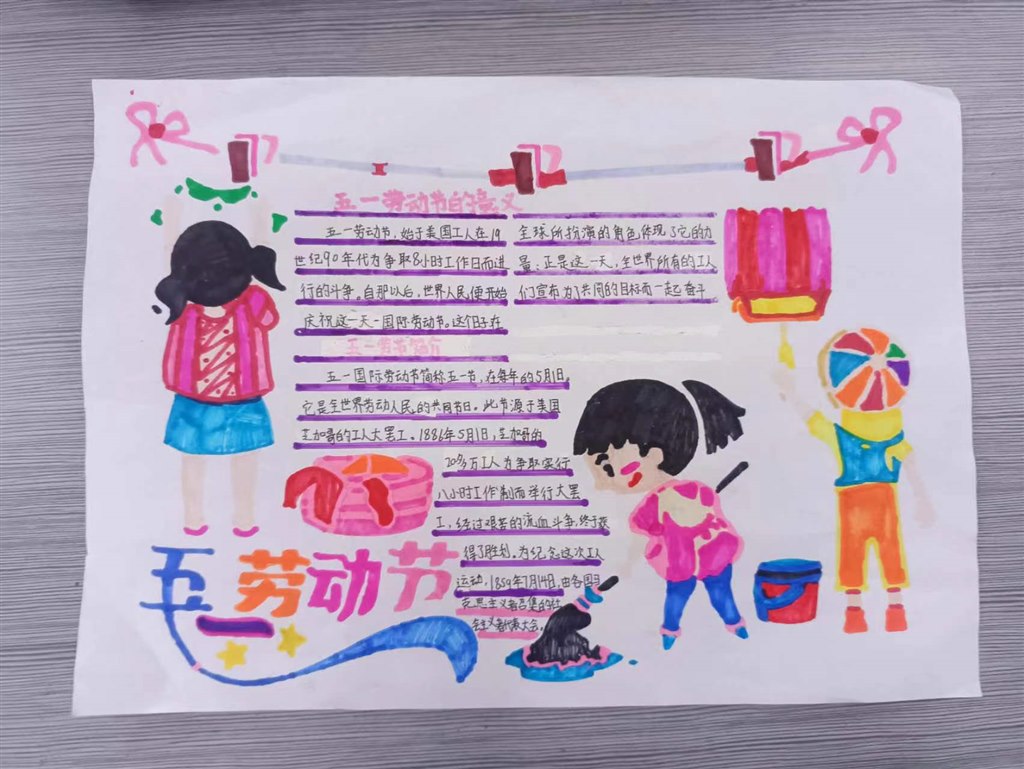 五一劳动节的意义
五一劳动节,始于美国工人在19
世纪90年代为争取8小时工作日而进
行的斗争。自那以后,世界人民便开始
庆祝这一天一国际劳动节。这个日子在
全球所扮演的角色,体现了它的力
量:正是这一天,全世界所有的工人
们宣布为了共同的目标而一起奋斗
五一劳动节简介
五一国际劳动节简称五一节,在每年的5月1日
它是全世界劳动人民的共同节日。此节源于美国
芝加哥的工人大罢工。1886年5月1日,芝加哥的
20多万工人为争取实行
八小时工作制而举行大罢
工,经过艰苦的流血斗争,终于获
得了胜利。为纪念这次工人
运动,1859年7月14日,由各国马
克思主义者召集的社
会主义者代表大会。
五一劳动节